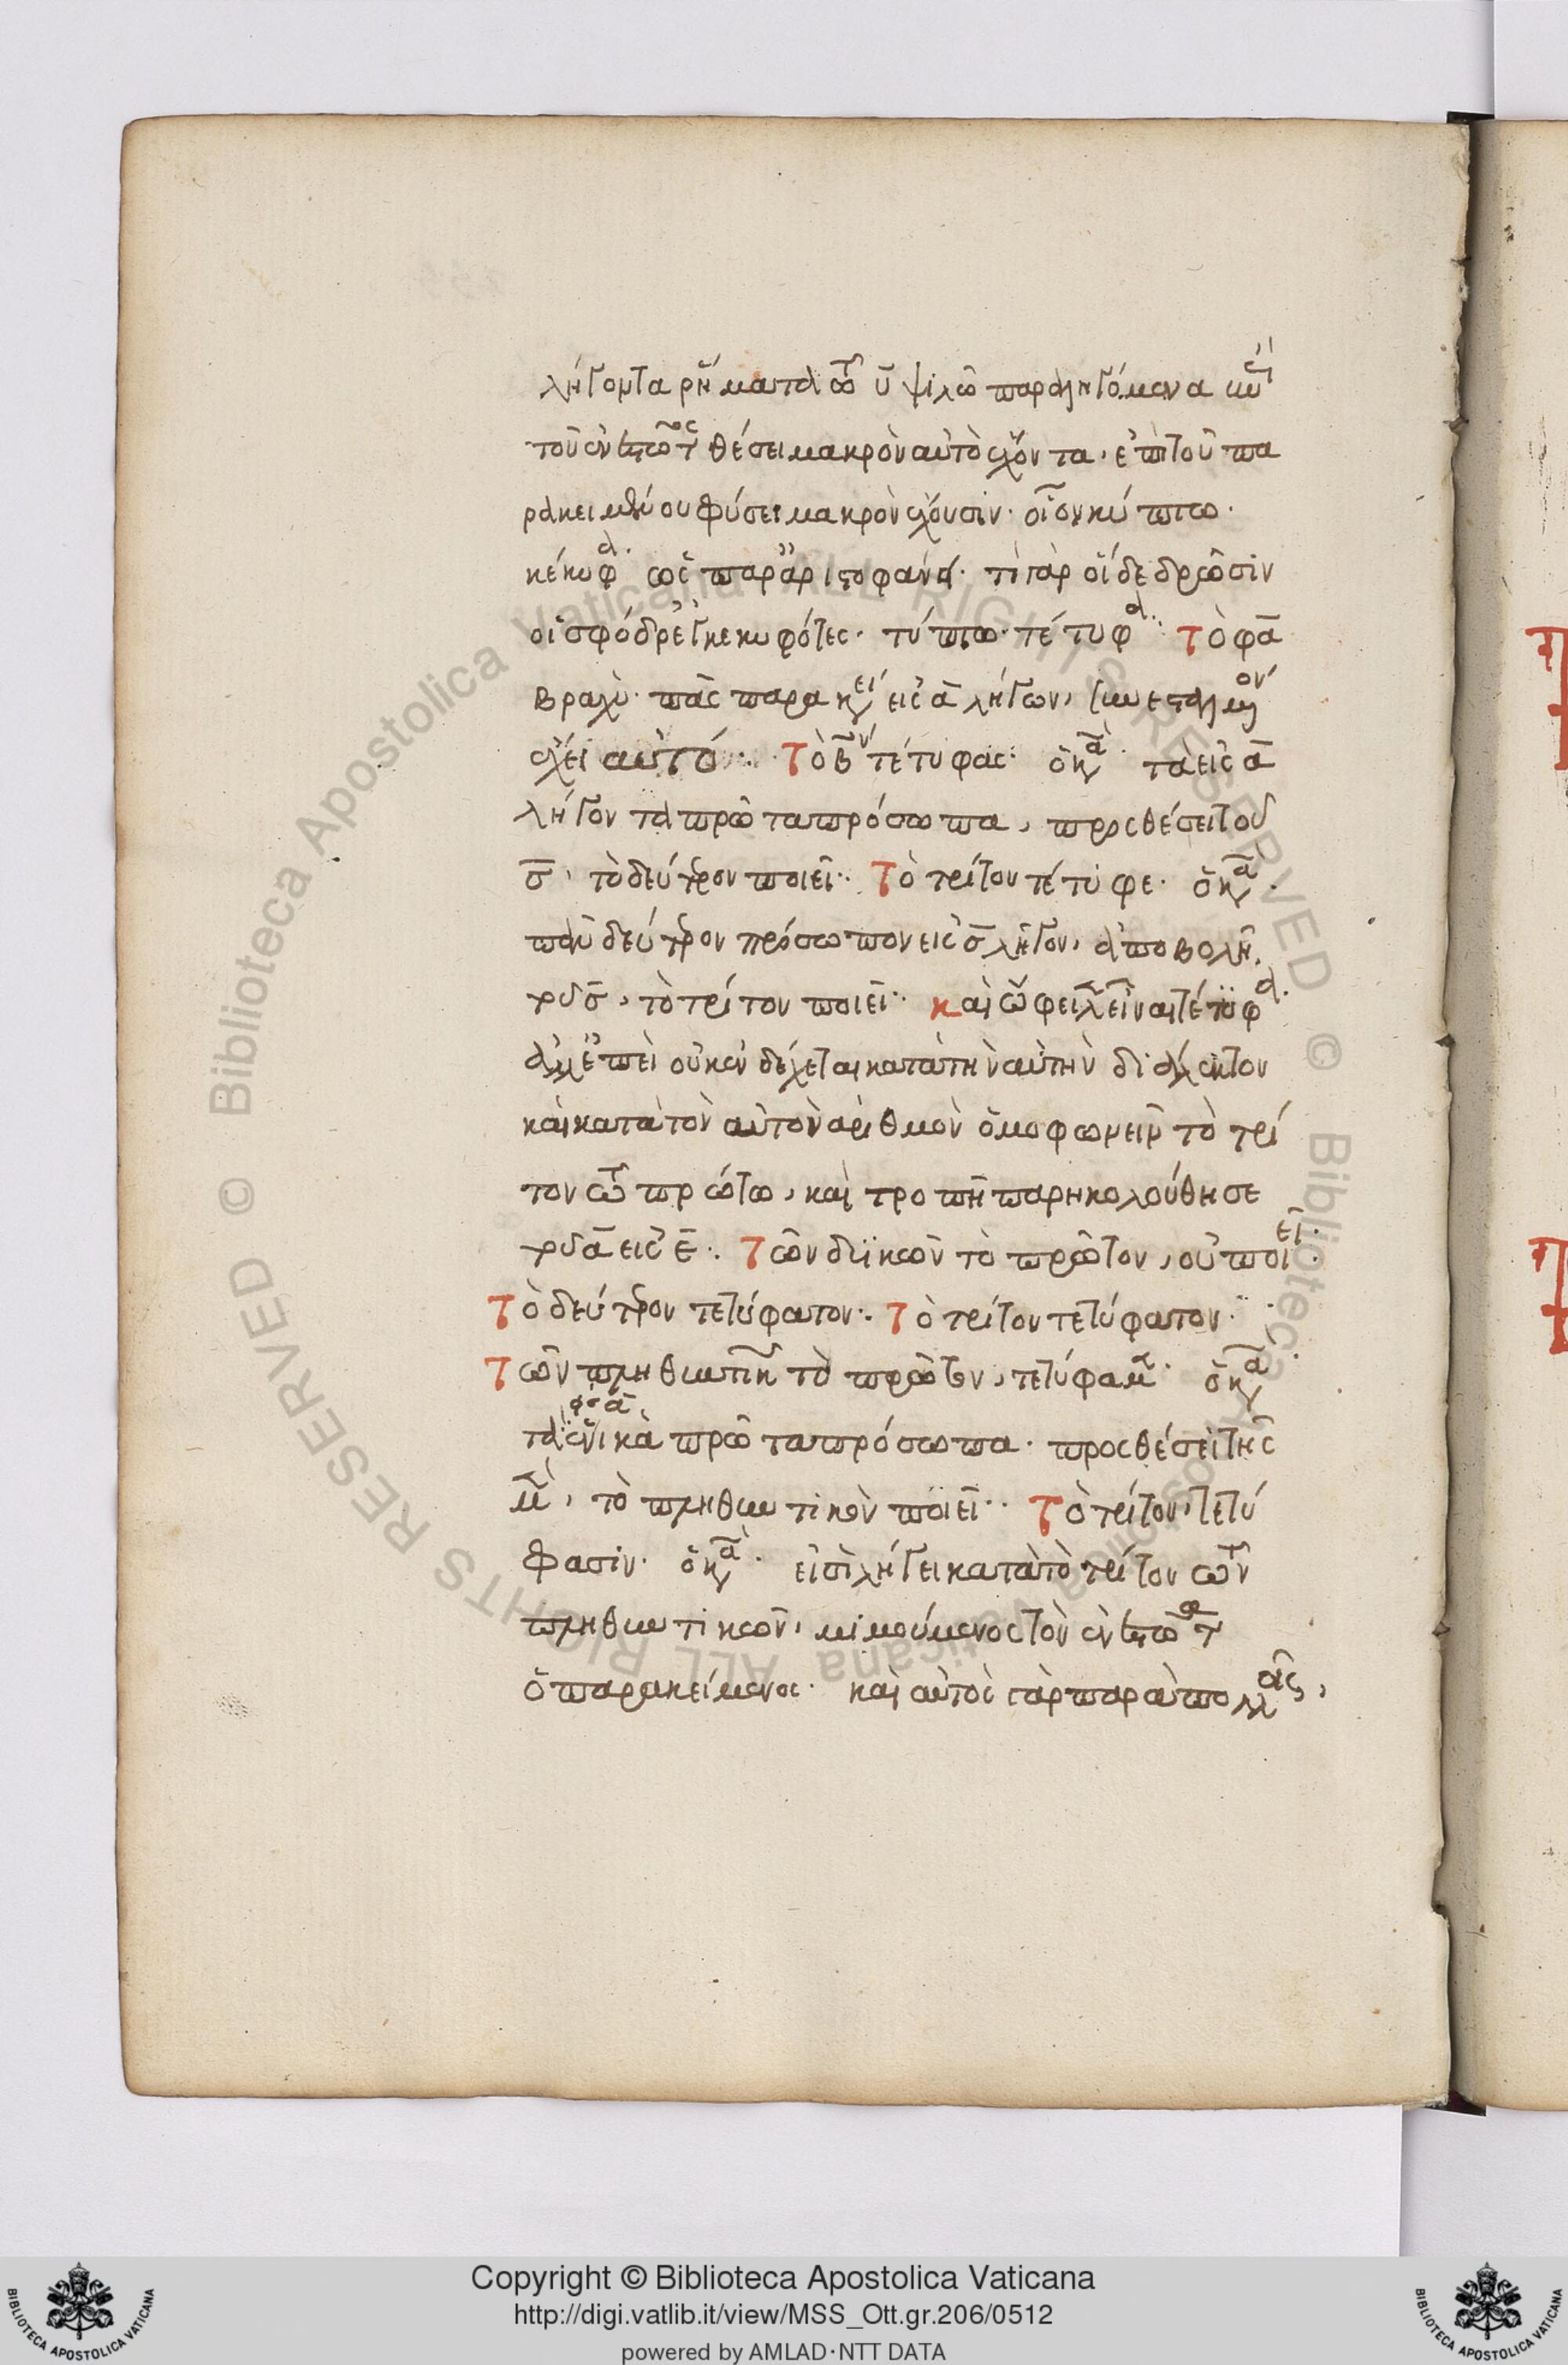 λήγοντα ῥήματα τῷ ῡ ψιλῷ παραληγόμενα καὶ
τοῦ ἐνεστῶτος θέσει μακρὸν αὐτὸ ἔχοντα, ἐπὶ τοῦ πα
ρακειμένου φύσει μακρὸν ἔχουσιν· οἷον κύπτω·
κέκυφα· ὡς παρ' ἀριστοφάνει· τί γὰρ οἵδε δρῶσιν
οἱ σφόδρ' ἐγκεκυφότες· τύπτω· τέτυφα· Τὸ φᾱ
βραχύ· πᾶς παρακείμενος εἰς ᾱ λήγων, συνεσταλμένον
ἔχει αὐτό· Τὸ β̄ον τέτυφας· ὁ κανὼν· τὰ εἰς ᾱ
λήγοντα πρῶτα πρόσωπα, προσθέσει τοῦ
σ̄, τὸ δεύτερον ποιεῖ· Τὸ τρίτον τέτυφε· ὁ κανὼν·
πᾶν δεύτερον πρόσωπον εἰς σ̄ λῆγον, ἀποβολῇ
τοῦ σ̄, τὸ τρίτον ποιεῖ· καὶ ὤφειλεν εἶναι τέτυφα·
ἀλλ' ἐπεὶ οὐκ ἐνδέχεται κατὰ τὴν αὐτὴν διάλεκτον
καὶ κατὰ τὸν αὐτὸν ἀριθμὸν ὁμοφωνεῖν τὸ τρί
τον τῷ πρώτῳ, καὶ τροπὴ παρηκολούθησε
τοῦ ᾱ εἰς ε̄· Τῶν δυϊκῶν τὸ πρῶτον, οὐ ποιεῖ·
Τὸ δεύτερον τετύφατον· Τὸ τρίτον τετύφατον·
Τῶν πληθυντικῶν τὸ πρῶτον, τετύφαμεν· ὁ κανὼν·
τὰ ἑνικὰ πρῶτα πρόσωπα· προσθέσει τῆς
μεν, τὸ πληθυντικὸν ποιεῖ· Τὸ τρίτον, τετύ
φασιν· ὁ κανὼν· εἰς σι λήγει κατὰ τὸ τρίτον τῶν
πληθυντικῶν, μιμούμενος τὸν ἐνεστῶτα
ὁ παρακείμενος· καὶ αὐτὸς γὰρ παρὰ πολλοῖς,
Copyright © Biblioteca Apostolica Vaticana
http://digi.vatlib.it/view/MSS_Ott.gr.206/0512
powered by AMLAD·NTT DATA